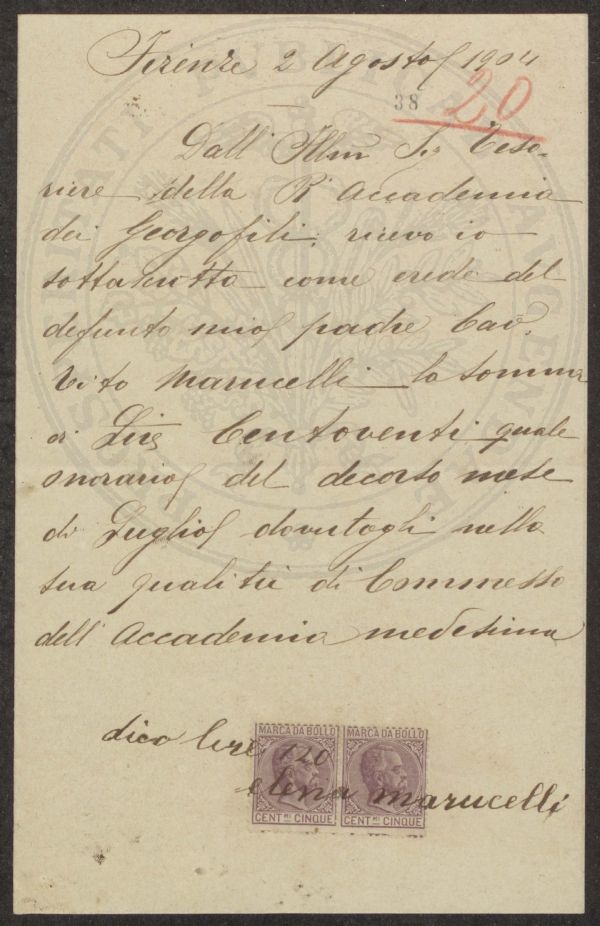 Firenze 2 Agosto 1904
38 20
Dall' Illmo Sr Teso-
riere della R Accademia
dei Georgofili, ricevo io
sottascritta come erede del
defunto mio padre Cav.
Vito Marucelli la somma
di Lire Centoventi quale
onorario del decorso mese
di Luglio dovutogli nella
sua qualità di Commesso
dell' Accademia medesima
MARCA DA BOLLO MARCA DA BOLLO
dico lire 120
elena marucelli
CENT.MI CINQUE CENT.MI CINQUE